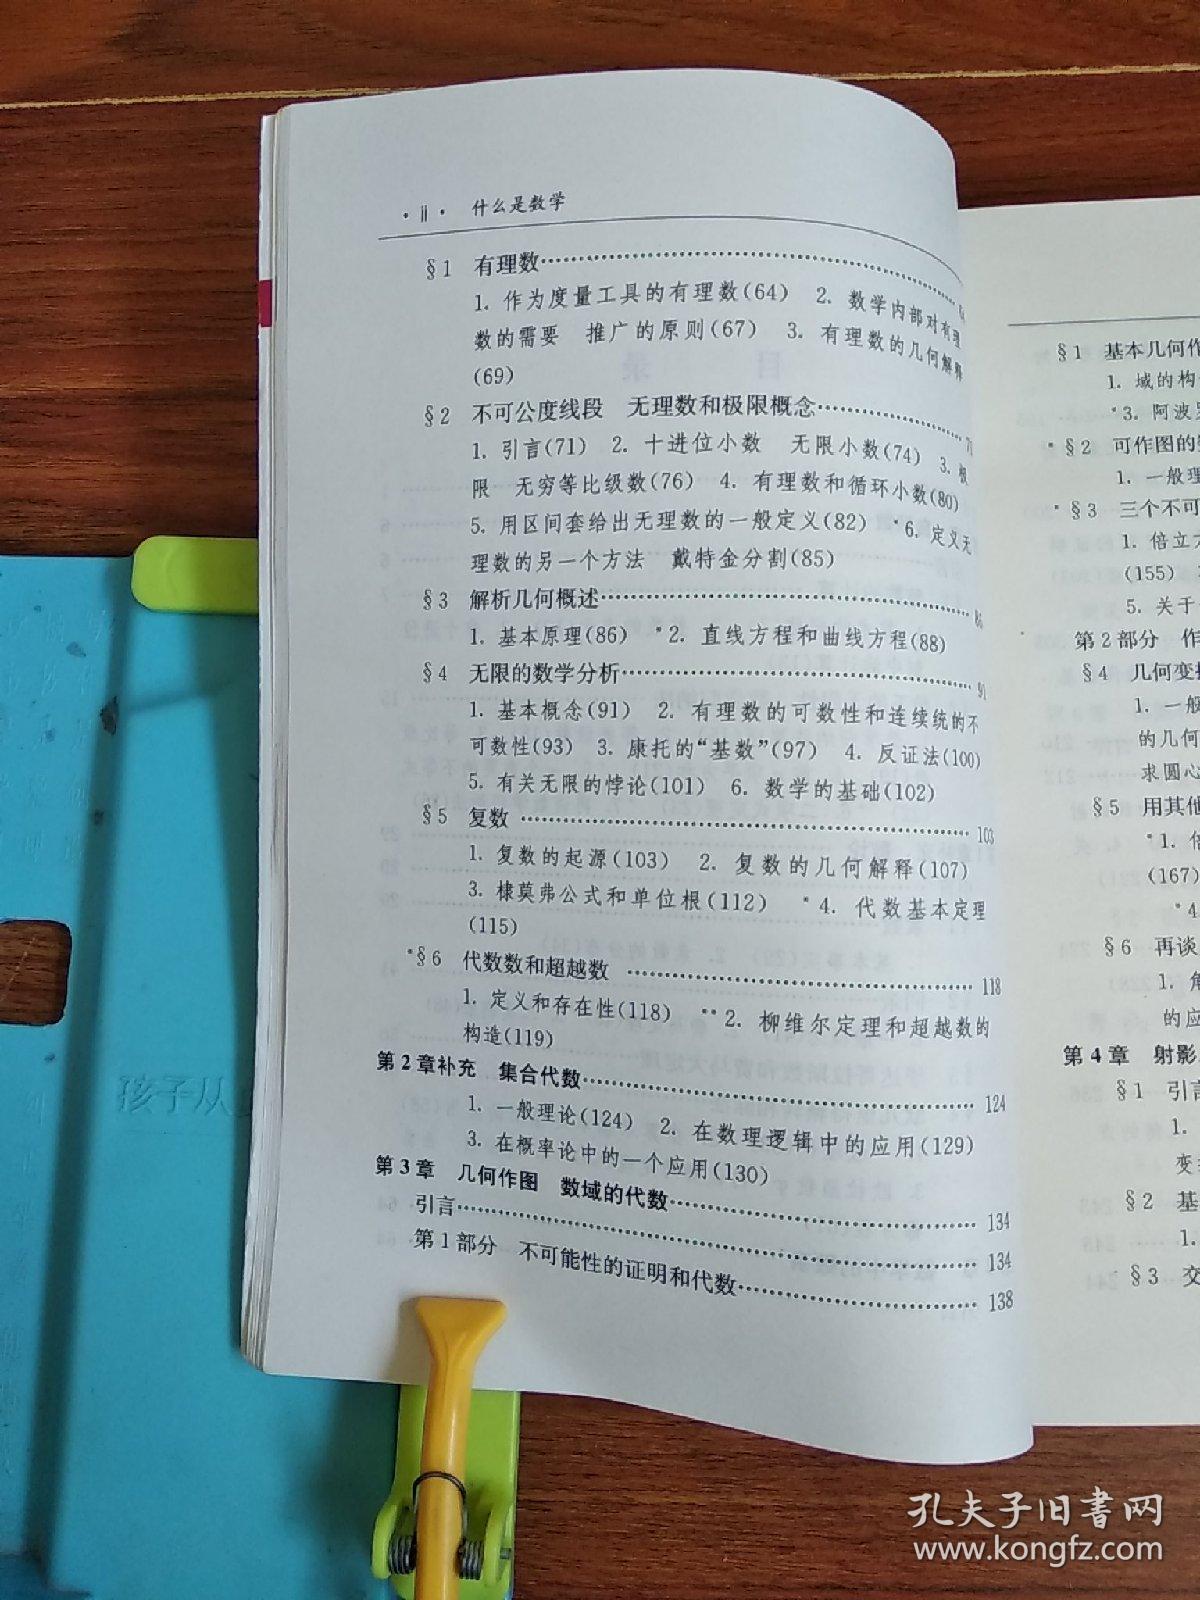 · ii · 什么是数学
§1 有理数
1. 作为度量工具的有理数(64) 2. 数学内部对有理
数的需要 推广的原则(67) 3. 有理数的几何解释
(69)
§2 不可公度线段 无理数和极限概念 71
1. 引言(71) 2. 十进位小数 无限小数(74) 3. 极
限 无穷等比级数(76) 4. 有理数和循环小数(80)
5. 用区间套给出无理数的一般定义(82) *6. 定义无
理数的另一个方法 戴特金分割(85)
§3 解析几何概述 86
1. 基本原理(86) *2. 直线方程和曲线方程(88)
§4 无限的数学分析 91
1. 基本概念(91) 2. 有理数的可数性和连续统的不
可数性(93) 3. 康托的“基数”(97) 4. 反证法(100)
5. 有关无限的悖论(101) 6. 数学的基础(102)
§5 复数 103
1. 复数的起源(103) 2. 复数的几何解释(107)
3. 棣莫弗公式和单位根(112) *4. 代数基本定理
(115)
*§6 代数数和超越数 118
1. 定义和存在性(118) **2. 柳维尔定理和超越数的
构造(119)
第2章补充 集合代数 124
1. 一般理论(124) 2. 在数理逻辑中的应用(129)
3. 在概率论中的一个应用(130)
第3章 几何作图 数域的代数 134
引言 134
第1部分 不可能性的证明和代数 138
§1 基本几何作
1. 域的构
*3. 阿波罗
*§2 可作图的
1. 一般理
*§3 三个不可
1. 倍立方
(155)
5. 关于
第2部分 作
§4 几何变换
1. 一般
的几何
求圆心
§5 用其他
*1. 倍
(167)
*4
§6 再谈
1. 角
的应
第4章 射影
§1 引言
1.
变
§2 基
1.
§3 交
孩子从
孔夫子旧书网
www.kongfz.com